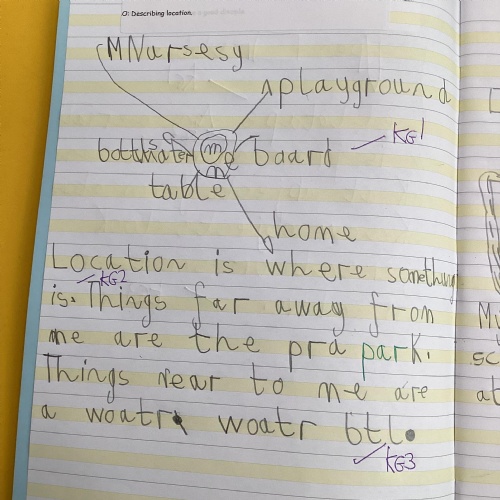 O: Describing location.
MNursesy
playground
bottle water me board KG1
table
home
Location is where something
KG2
is. Things far away from
me are the pra park.
Things near to me are
a woatr woatr btl.
KG3